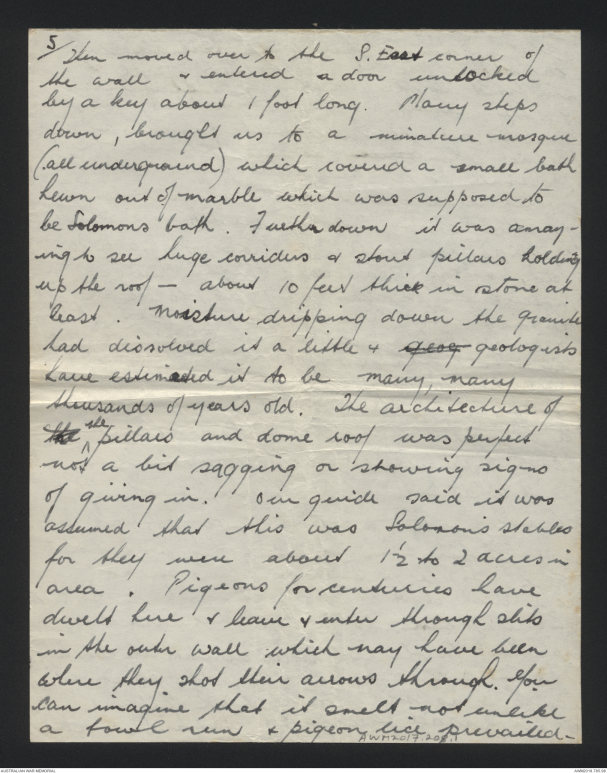 5/ Then moved over to the S. East corner of
the wall & entered a door unlocked
by a key about 1 foot long. Many steps
down, brought us to a minature mosque
(all underground) which covered a small bath
hewn out of marble which was supposed to
be Solomons bath. Further down it was amaz-
ing to see huge corridors & stout pillars holding
up the roof — about 10 feet thick in stone at
least. Moisture dripping down the granite
had dissolved it a little & geog geologists
have estimated it to be many, many
thousands of years old. The architecture of
the the pillars and dome roof was perfect
not a bit sagging or showing signs
of giving in. Our guide said it was
assumed that this was Solomon's stables
for they were about 1½ to 2 acres in
area. Pigeons for centuries have
dwelt here & leave & enter through slits
in the outer wall which may have been
where they shot their arrows through. You
can imagine that it smelt not unlike
a fowl run & pigeon lice prevailed-
AWM2017.208.1
AUSTRALIAN WAR MEMORIAL